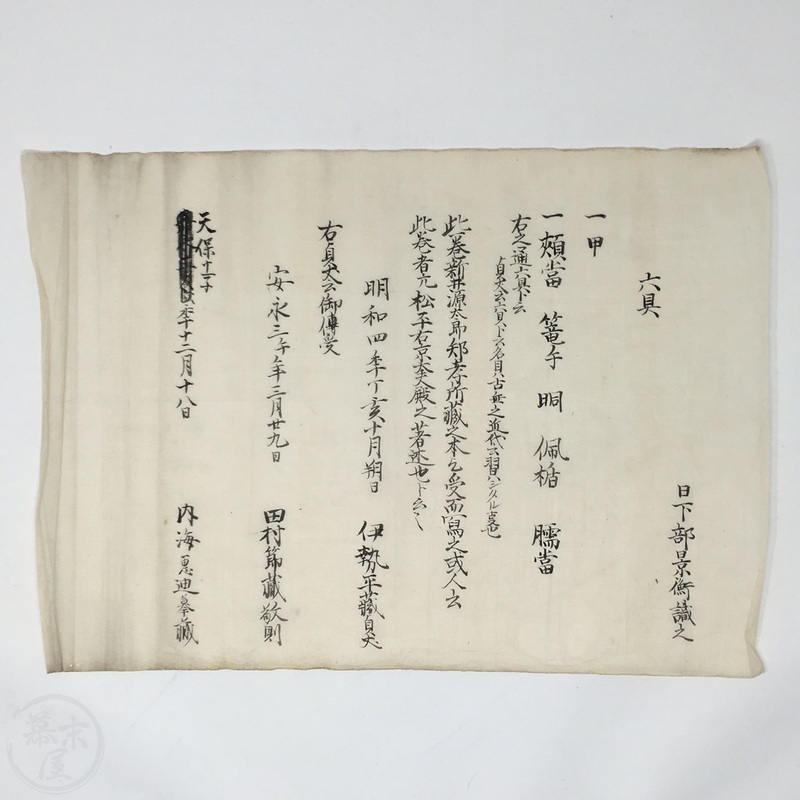 日下部景衡識之
六具
一甲
一頬當 篭手 胴 佩楯 臑當
右之通六具ト云
貞丈云六具ト云名目古無之近代云習ハシタル事也
此巻新井源太郎邦孝所藏之本乞受而寫之或人云
此巻者元松平右京太夫殿之著述也ト云々
明和四季丁亥十月朔日 伊勢平藏貞丈
右貞丈云御傳受
安永三午年三月廿九日 田村節藏敬則
天保十一子
季十二月十八日 内海惠迪摹藏
幕末屋